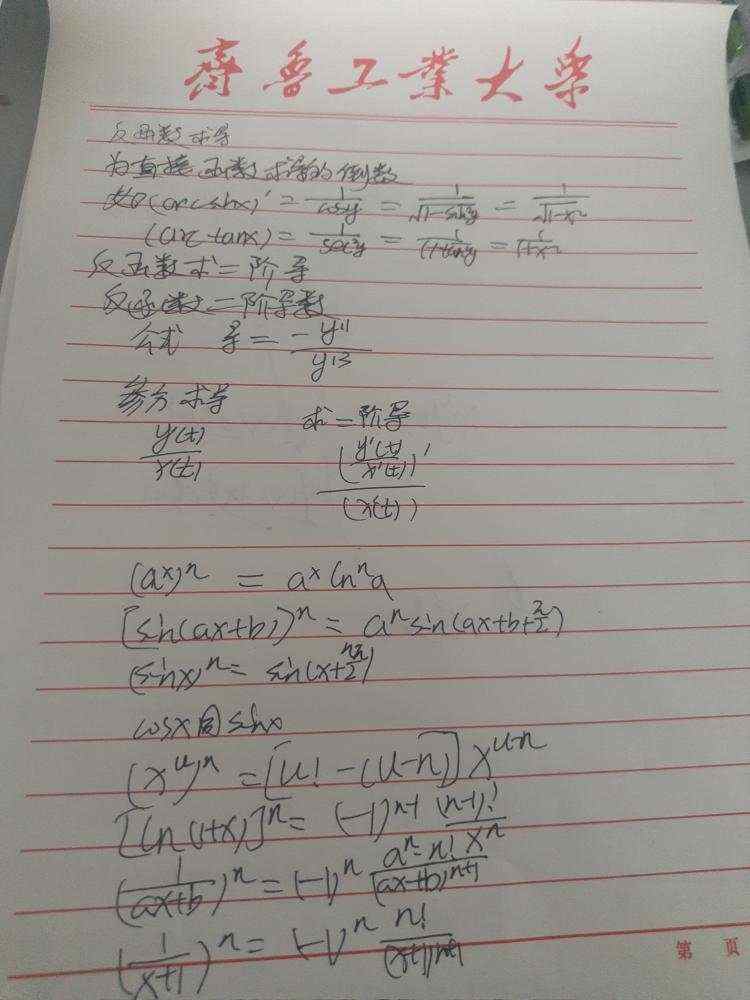 齊魯工業大學
反函数求导
为直接函数求导的倒数
如(arcsinx)' = 1/cosy = 1/√(1-sin²y) = 1/√(1-x²)
(arctanx) = 1/sec²y = 1/(1+tan²y) = 1/(1+x²)
反函数求二阶导
反函数二阶导数
公式 导 = -y''/y'3
参方求导 求二阶导
y(t)/x(t) (y'(t)/x'(t))'/(x'(t))
(aˣ)ⁿ = aˣ lnⁿa
[sin(ax+b)]ⁿ = aⁿsin(ax+b+π/2)
(sinx)ⁿ = sin(x+nπ/2)
cosx同sinx
(xᵘ)ⁿ = [u! - (u-n)] xᵘ⁻ⁿ
[ln(1+x)]ⁿ = (-1)ⁿ⁺¹ (n-1)!/xⁿ
(1/(ax+b))ⁿ = (-1)ⁿ aⁿ·n!/(ax+b)ⁿ⁺¹
(1/(x+1))ⁿ = (-1)ⁿ n!/(x+1)ⁿ⁺¹
第 页